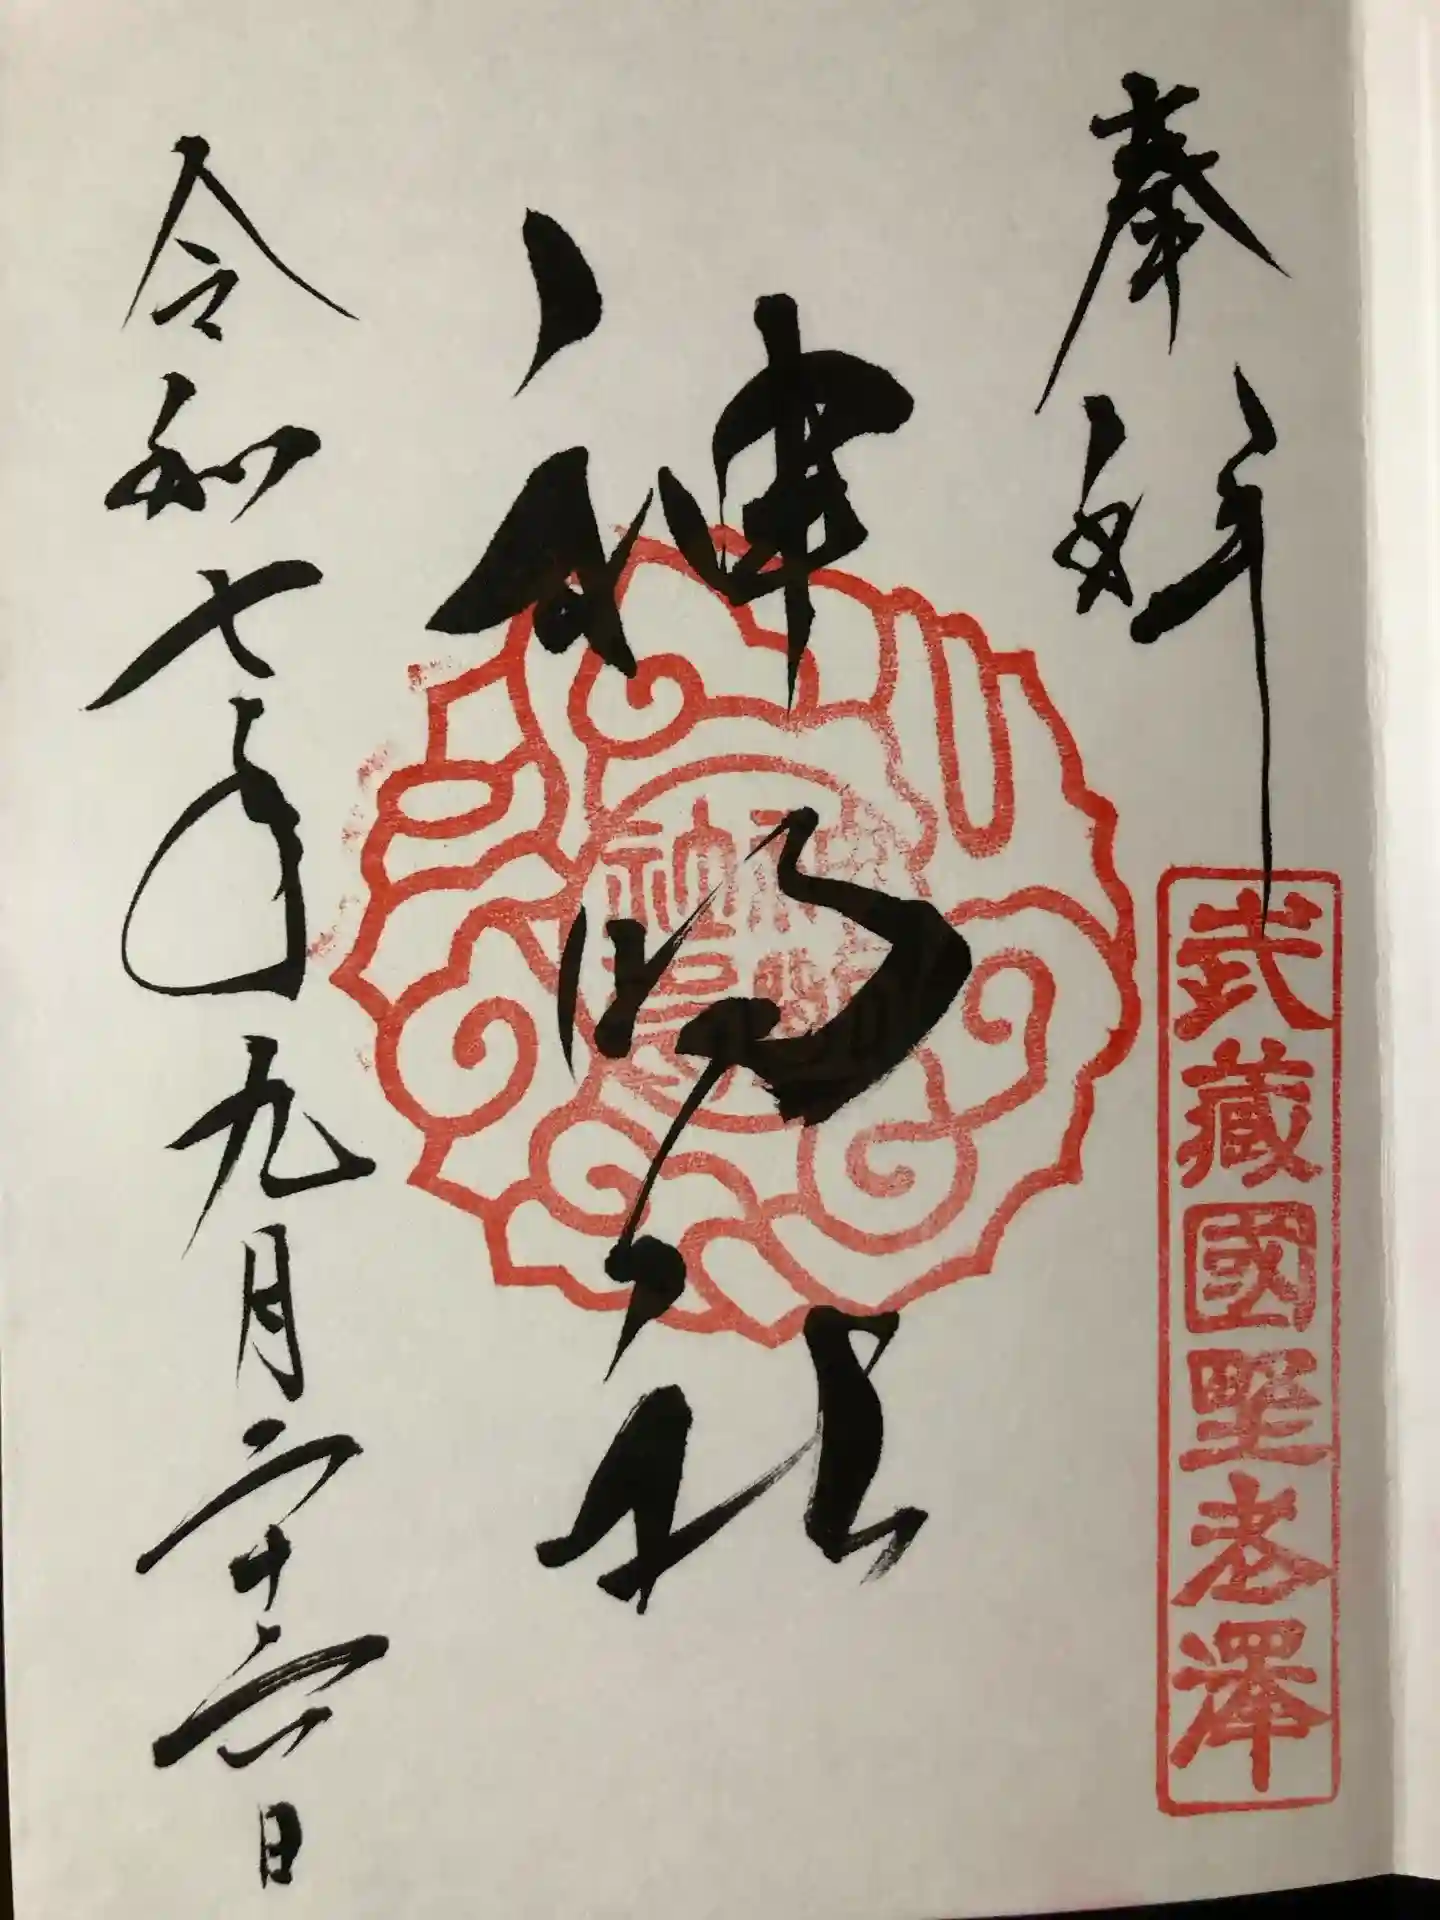 奉拝
武藏國野老澤
神明社
令和七年九月二十六日